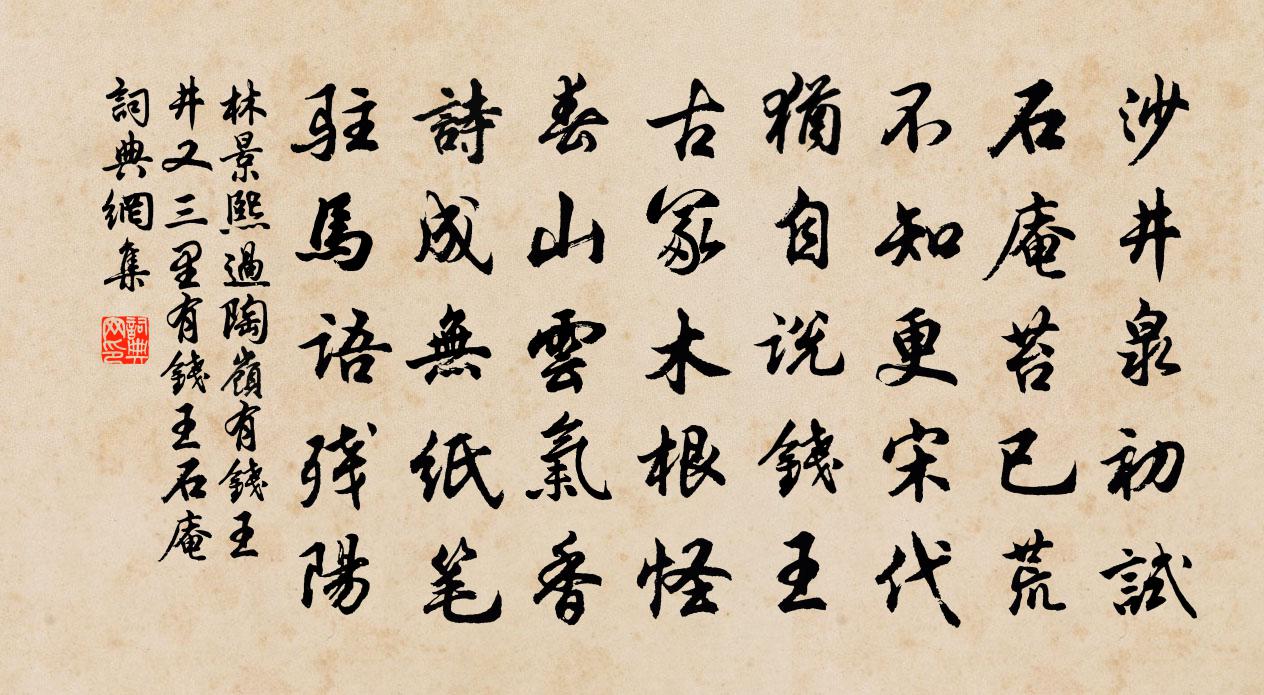 沙井泉初試
石庵苔已荒
不知更宋代
猶自説錢王
古冢木根怪
春山雲氣香
詩成無紙笔
駐馬語残陽
林景熙過陶嶺有錢王
井又三里有錢王石庵
詞典網集
詞典网印